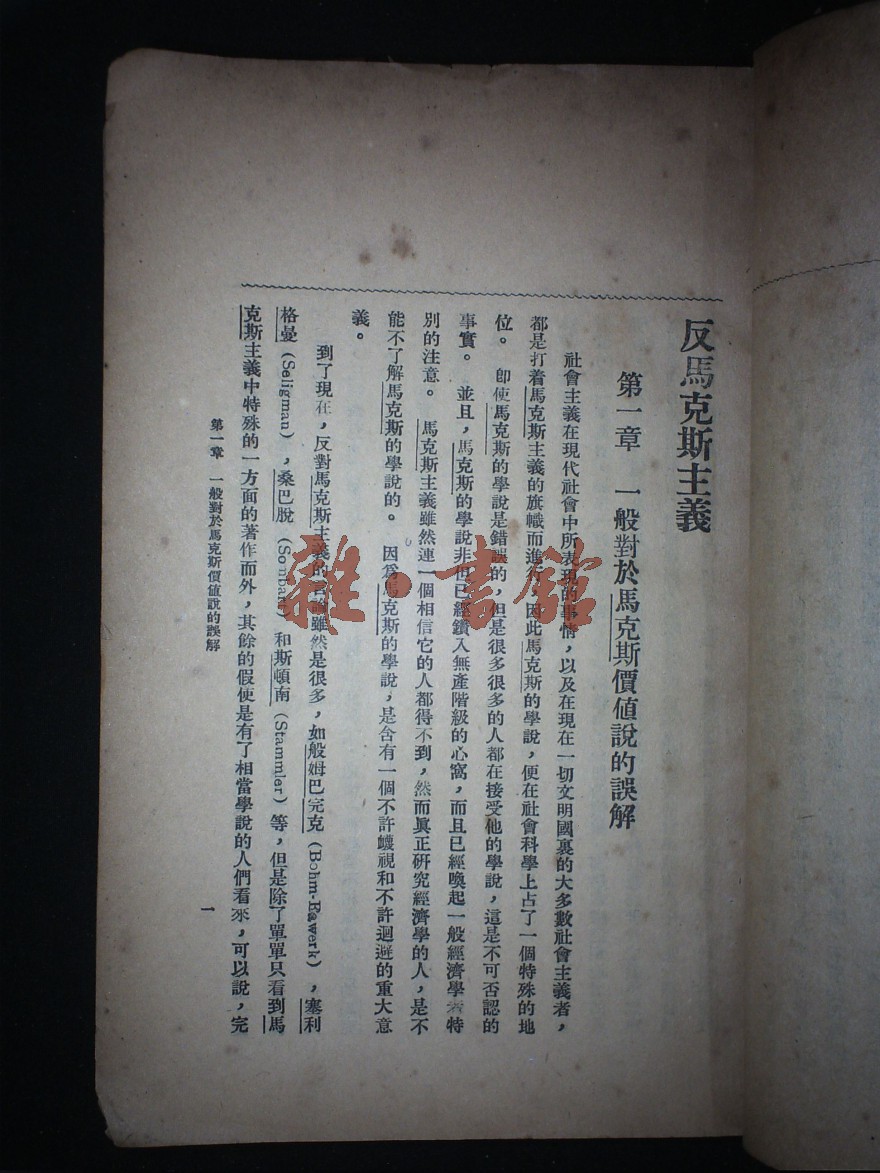 反馬克斯主義
第一章 一般對於馬克斯價值說的誤解
社會主義在現代社會中所表現的事情，以及在現在一切文明國裏的大多數社會主義者，
都是打着馬克斯主義的旗幟而進行，因此馬克斯的學說，便在社會科學上占了一個特殊的地
位。 卽使馬克斯的學說是錯誤的，但是很多很多的人都在接受他的學說，這是不可否認的
事實。 並且，馬克斯的學說非但已經鑽入無產階級的心窩，而且已經喚起一般經濟學者特
別的注意。 馬克斯主義雖然連一個相信它的人都得不到，然而眞正研究經濟學的人，是不
能不了解馬克斯的學說的。 因爲馬克斯的學說，是含有一個不許蠛視和不許迴避的重大意
義。
到了現在，反對馬克斯主義的言論雖然是很多，如般姆巴完克（Bohm-Bawerk），塞利
格曼（Seligman），桑巴脫（Sombart）和斯頓南（Stammler）等，但是除了單單只看到馬
克斯主義中特殊的一方面的著作而外，其餘的假使是有了相當學說的人們看來，可以說，完
第一章 一般對於馬克斯價值說的誤解
一
雜·書館